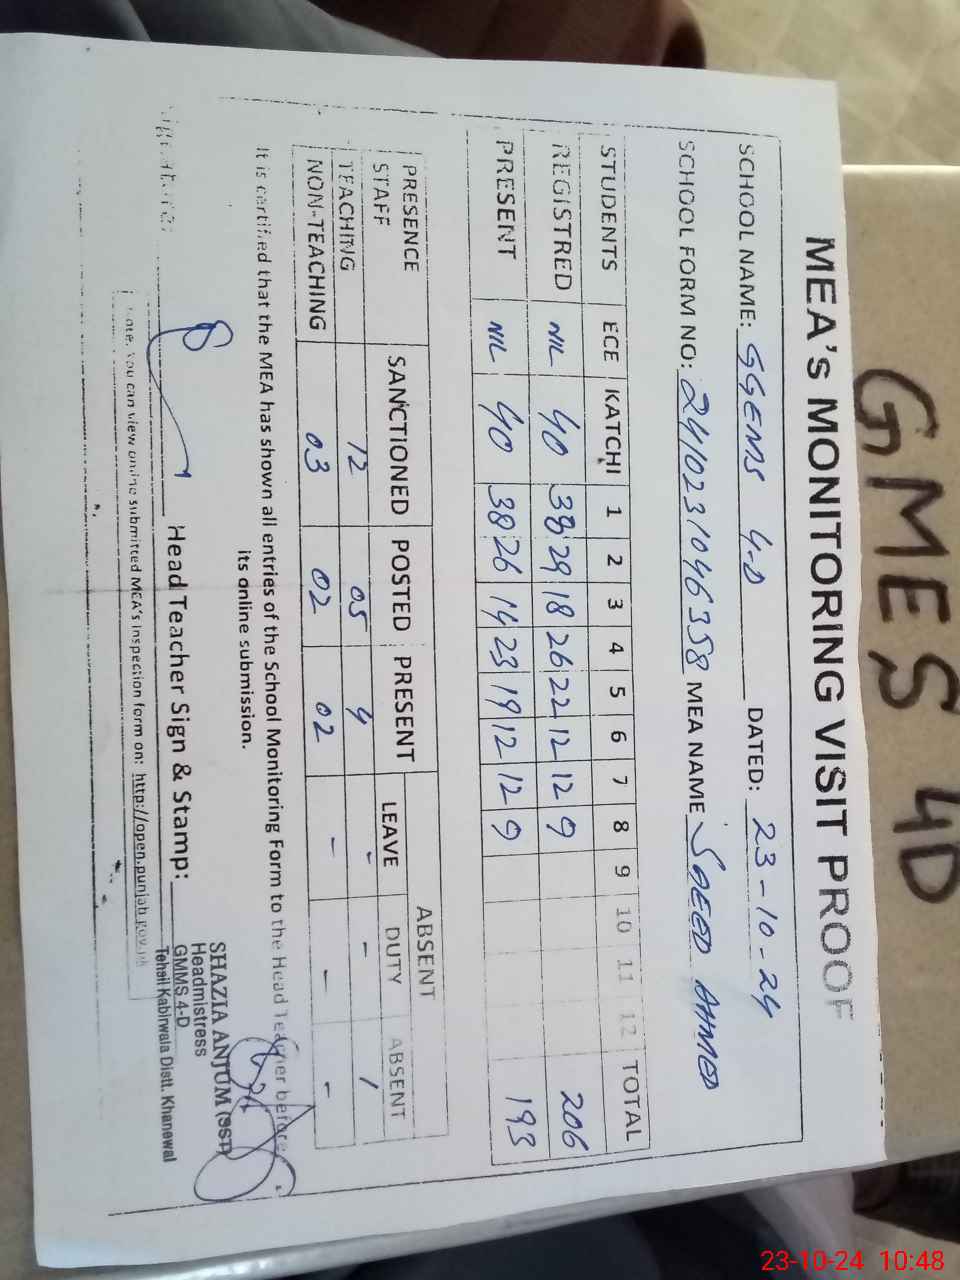 GMES 4D
MEA's MONITORING VISIT PROOF
SCHOOL NAME: GGEMS 4-D DATED: 23-10-24
SCHOOL FORM NO: 2410231046358 MEA NAME SAEED AHMED
STUDENTS ECE KATCHI 1 2 3 4 5 6 7 8 9 10 11 12 TOTAL
REGISTRED NIL 40 38 29 18 26 22 12 12 9 206
PRESENT NIL 40 38 26 14 23 19 12 12 9 193
PRESENCE SANCTIONED POSTED PRESENT ABSENT
STAFF LEAVE DUTY ABSENT
TEACHING 12 05 4 - - 1
NON-TEACHING 03 02 02 - - -
It is certified that the MEA has shown all entries of the School Monitoring Form to the Head Teacher before
its online submission.
Signature: Head Teacher Sign & Stamp:
SHAZIA ANJUM (SST)
Headmistress
GMMS 4-D
Tehsil Kabirwala Distt. Khanewal
Note. You can view online submitted MEA's inspection form on: http://open.punjab.gov.pk
23-10-24 10:48